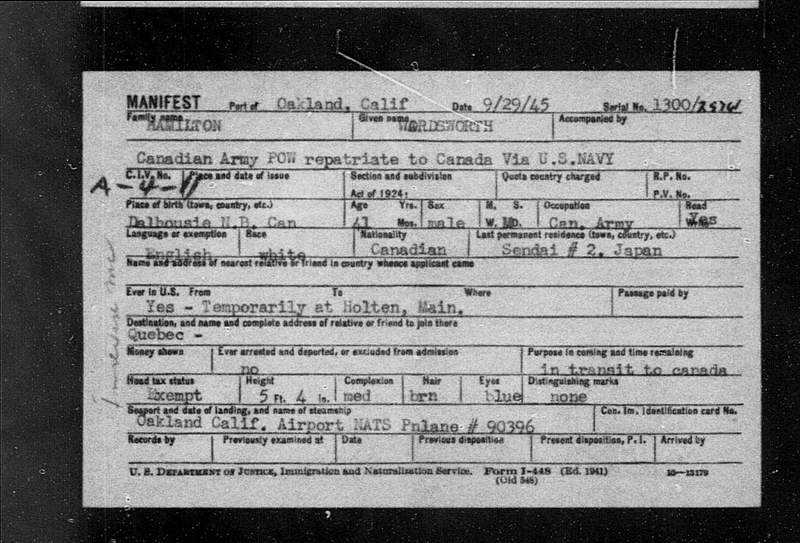 MANIFEST Port of Oakland, Calif Date 9/29/45 Serial No. 1300/
Family name Given name Accompanied by
HAMILTON WORDSWORTH
Canadian Army POW repatriate to Canada Via U.S.NAVY
C.I.V. No. Place and date of issue Section and subdivision Quota country charged R.P. No.
A-4-11 Act of 1924: P.V. No.
Place of birth (town, country, etc.) Age Yrs. Sex M. S. Occupation Read
Dalhousie N.B. Can 41 Mos. male W. D. Can. Army Yes
Language or exemption Race Nationality Last permanent residence (town, country, etc.)
English white Canadian Sendai # 2. Japan
Name and address of nearest relative or friend in country whence applicant came
Ever in U.S. From To Where Passage paid by
Yes - Temporarily at Holten, Main.
Destination, and name and complete address of relative or friend to join there
Quebec -
Money shown Ever arrested and deported, or excluded from admission Purpose in coming and time remaining
no in transit to canada
Head tax status Height Complexion Hair Eyes Distinguishing marks
Exempt 5 Ft. 4 In. med brn blue none
Seaport and date of landing, and name of steamship Can. Im. Identification card No.
Oakland Calif. Airport NATS Pnlane # 90396
Records by Previously examined at Date Previous disposition Present disposition, P.I. Arrived by
U. S. DEPARTMENT OF JUSTICE, Immigration and Naturalization Service. Form I-448 (Ed. 1941) 16—13179
(Old 548)